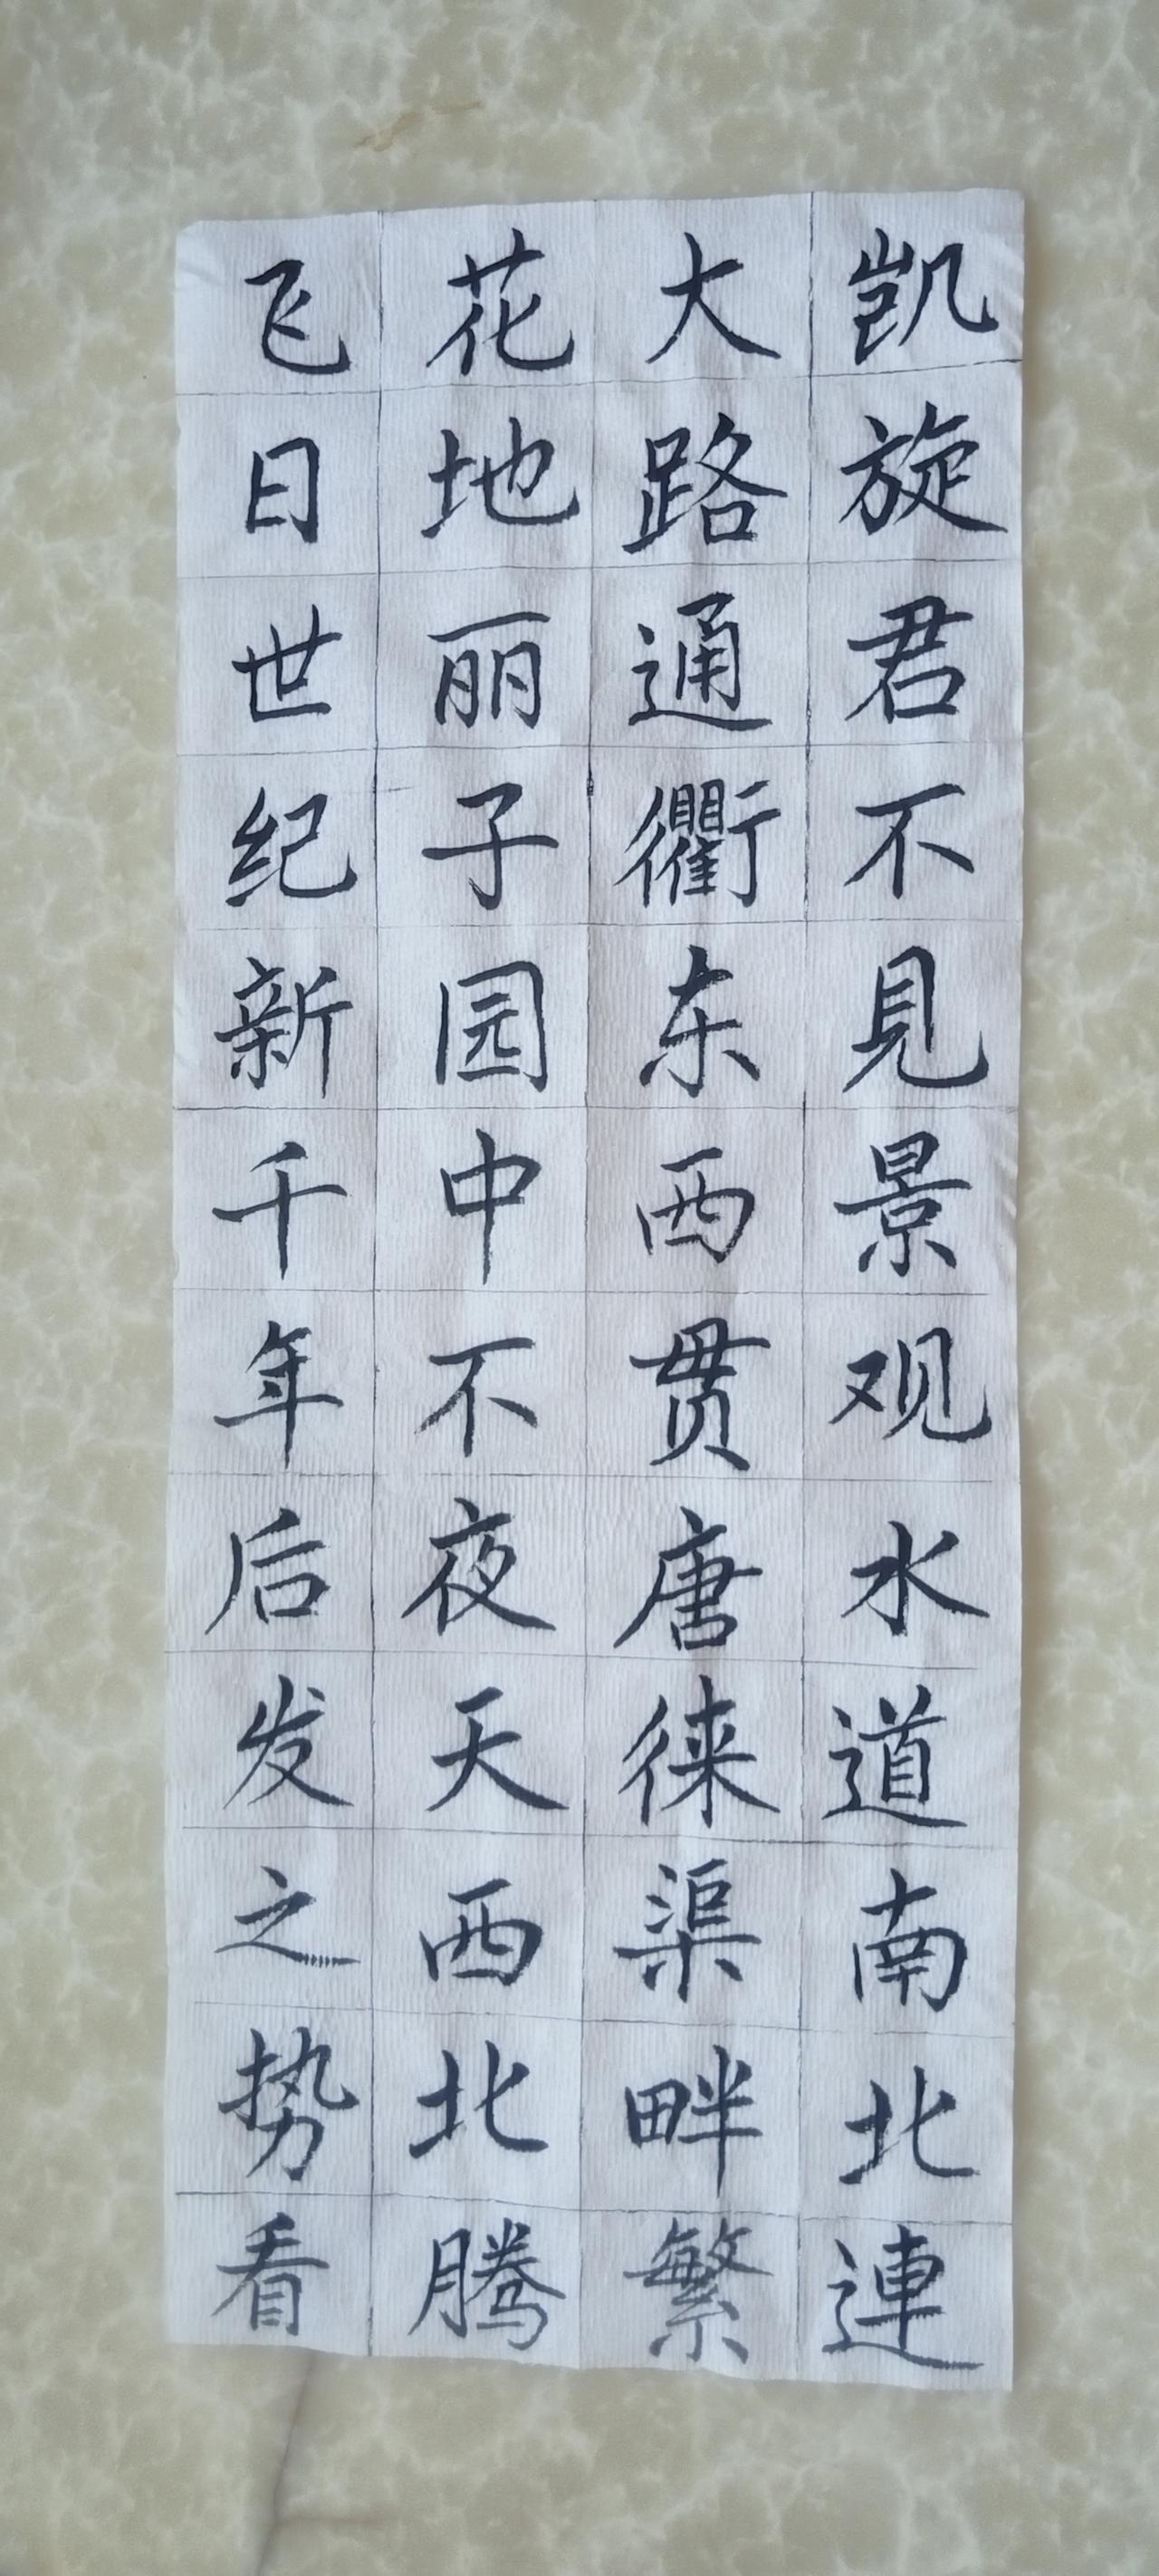 凯旋君不見景观水道南北連
大路通衢东西贯唐徕渠畔繁
花地丽子园中不夜天西北腾
飞日世纪新千年后发之势看